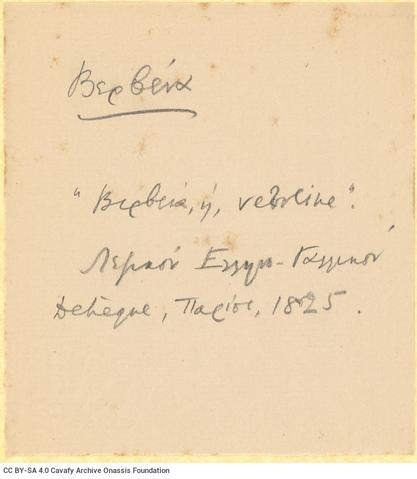 Βερβένα
"Βερβένα, ή, verveine".
Λεξικόν Ελλην-Γαλλικόν
Dehèque, Παρίσι, 1825.
CC BY-SA 4.0 Cavafy Archive Onassis Foundation